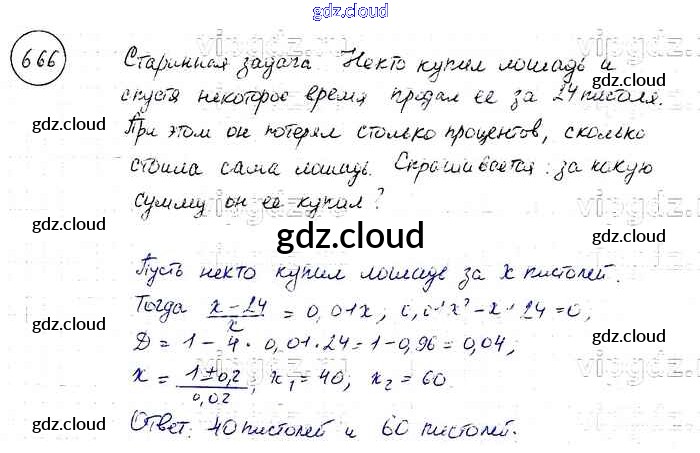 gdz.cloud
666
Старинная задача Некто купил лошадь и
gdz.cloud
спустя некоторое время продал ее за 24 пистоля.
gdz.cloud
При этом он потерял столько процентов, сколько
стоила сама лошадь. Спрашивается: за какую
gdz.cloud
сумму он ее купил?
gdz.cloud
gdz.cloud
gdz.cloud
Пусть некто купил лошадь за x пистолей.
Тогда x-24/x = 0,01x; 0,01x²-x+24=0;
gdz.cloud
D = 1 - 4 · 0,01 · 24 = 1 - 0,96 = 0,04;
gdz.cloud
x = 1±0,2/0,02; x₁ = 40; x₂ = 60.
Ответ. 40 пистолей и 60 пистолей.
gdz.cloud
gdz.cloud